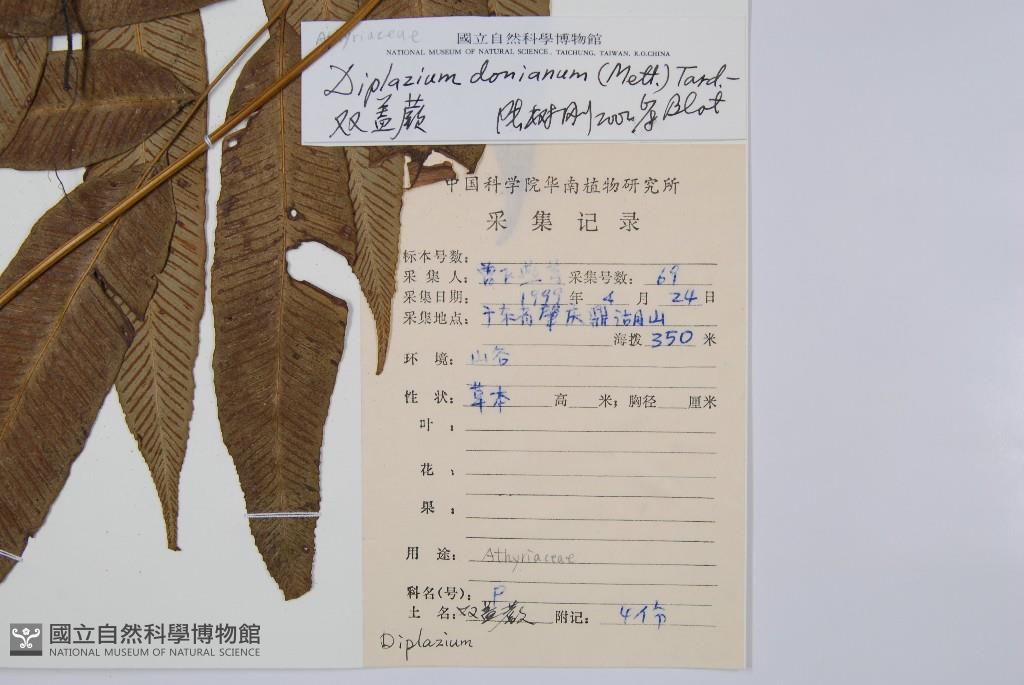 Athyriaceae
國立自然科學博物館
NATIONAL MUSEUM OF NATURAL SCIENCE, TAICHUNG, TAIWAN, R.O.CHINA
Diplazium donianum (Mett.) Tard.-
双盖蕨 陈树刚 2006年 Blot
中国科学院华南植物研究所
采集记录
标本号数:
采集人: 曹 采集号数: 69
采集日期: 1999年 4月 24日
采集地点: 广东省肇庆鼎湖山
海拨 350 米
环境: 山谷
性状: 草本 高 米; 胸径 厘米
叶:
花:
果:
用途: Athyriaceae
科名(号): P
土名: 双盖蕨 附记: 4份
Diplazium
國立自然科學博物館
NATIONAL MUSEUM OF NATURAL SCIENCE